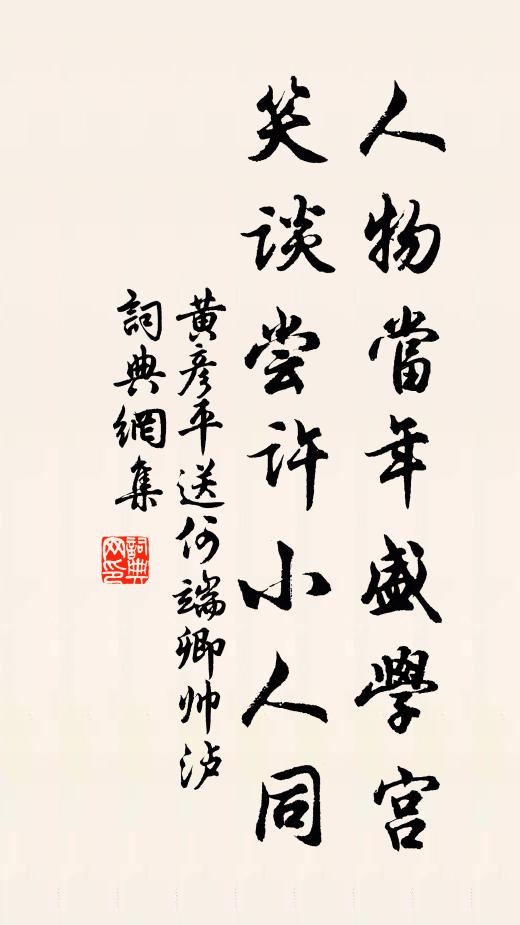 人物當年盛學宮
笑谈尝许小人同
黃彥平送何端卿帅泸
詞典網集
詞典網印